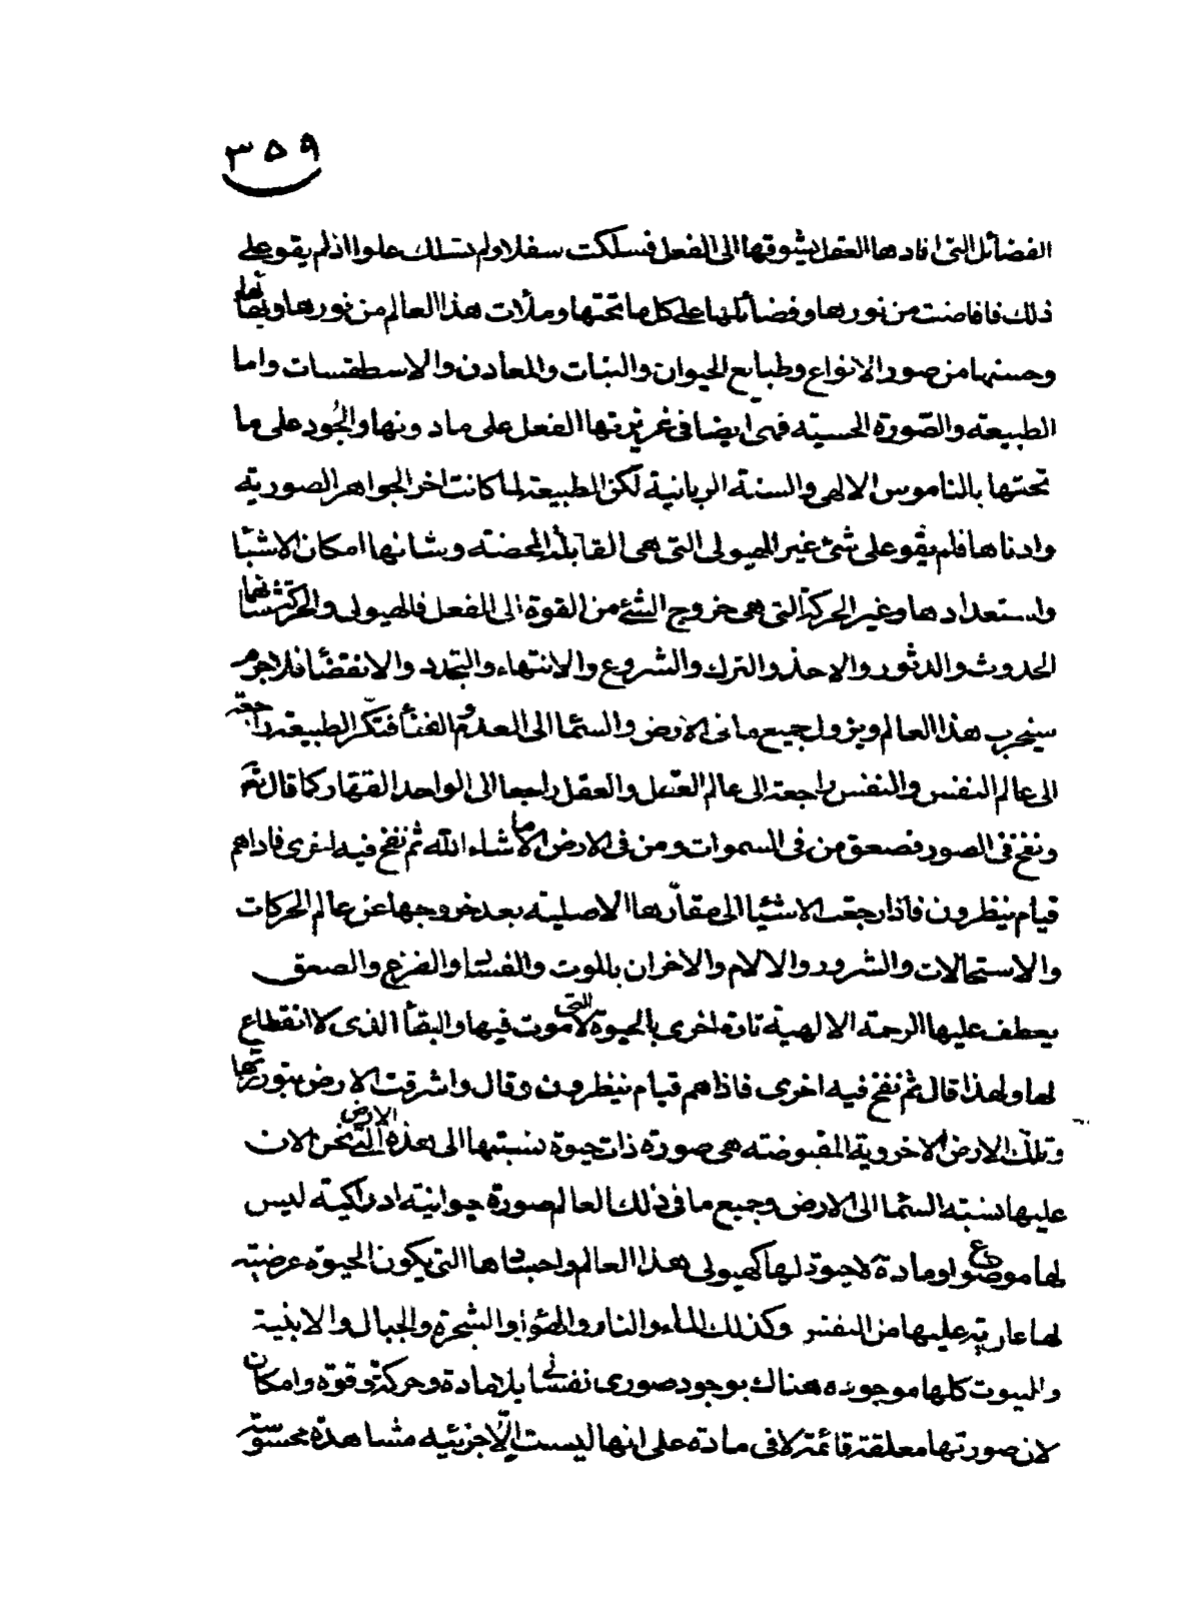 ٣٥٩
الفضائل التى افادها العقل يشوقها الى الفعل فسلكت سفلا ولم تسلك علوا اذ لم يقو على
ذلك فافاضت من نورها وفضائلها على كل ما تحتها وملأت هذا العالم من نورها وبهائها
وحسنها من صور الانواع وطبايع الحيوان والنبات والمعادن والاسطقسات واما
الطبيعة والصّورة الحسيّة فهى ايضا فى غريزتها الفعل على ما دونها والجُود على ما
تحتها بالناموس الالهى والسنة الربانية لكن الطبيعة لما كانت اخر الجواهر الصورية
وادناها فلم يقو على شئ غير الهيولى التى هى القابلة المحضة وبشانها امكان الاشيا
واستعدادها وغير الحركة التى هى خروج الشئ من القوة الى الفعل فالهيولى والحركة شانهما
الحدوث والدثور والاخذ والترك والشروع والانتهاء والتجدد والانقضا فلا جرم
سيخرب هذا العالم ويزول جميع ما فى الارض والسما الى العدم والفنا فتكرّ الطبيعة راجعة
الى عالم النفس والنفس راجعة الى عالم العقل والعقل راجعا الى الواحد القهار كما قال تع
ونفخ فى الصور فصعق من فى السموات ومن فى الارض الا ما شاء الله ثم نفخ فيه اخرى فاذا هم
قيام ينظرون فاذا رجعت الاشيا الى مقارّها الاصلية بعد خروجها عن عالم الحركات
والاستحالات والشرور والالام والاخران بالموت والفسا والفزع والصعق
يعطف عليها الرحمة الالهية تارة اخرى بالحيوة التى لا موت فيها والبقا الذى لا انقطاع
لها ولهذا قال ثم نفخ فيه اخرى فاذا هم قيام ينظرون وقال واشرقت الارض بنور ربها
وتلك الارض الاخروية المقبوضة هى صورة ذات حيوة نسبتها الى هذه الارض التى نحن الان
عليها نسبة السما الى الارض وجميع ما فى ذلك العالم صورة حيوانية ادراكية ليس
لها موضوع او مادة لا حيوة لها كهيولى هذا العالم واجسادها التى يكون الحيوة عرضية
لها عارية عليها من النفس وكذلك الماء والنار والهوا والشجرة والجبال والابنية
والبيوت كلها موجودة هناك بوجود صورى نفسانى بلا مادة وحركة وقوة وامكان
لان صورتها معلقة قائمة لا فى مادة على انها ليست الّا جزئية مشاهدة محسوسة